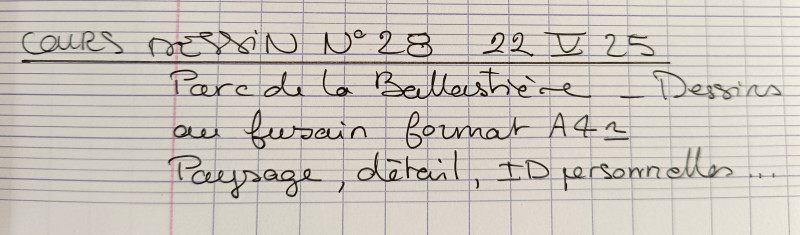 COURS DESSIN N° 28 22 V 25
Parc de la Ballastière _ Dessins
au fusain format A4 ~
Paysage, détail, ID personnelles...